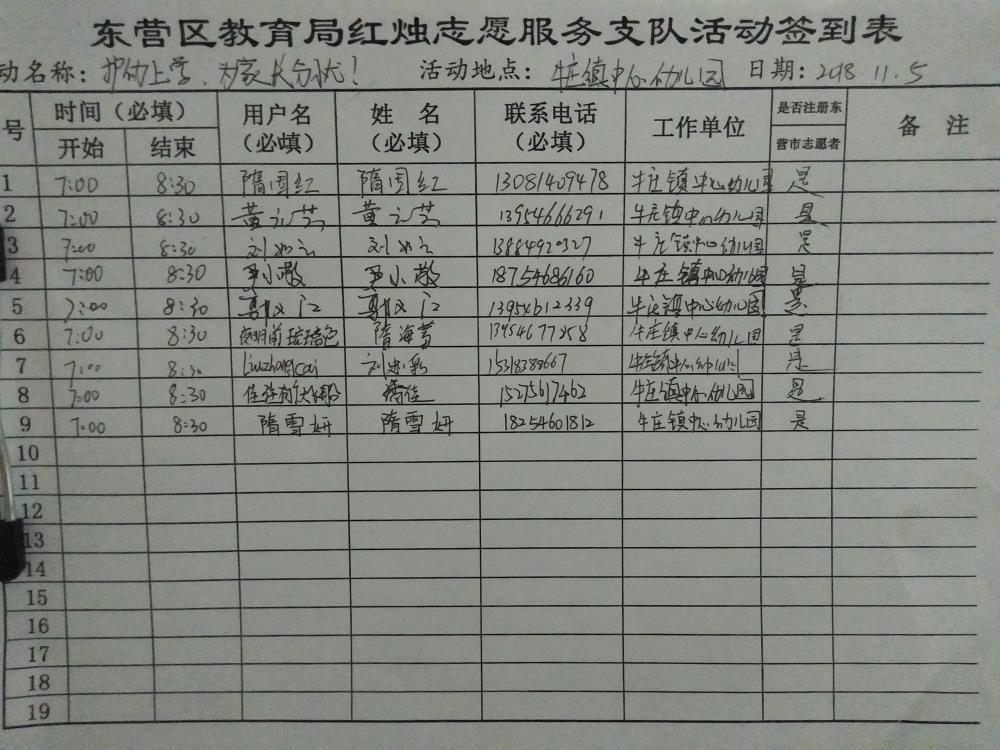 东营区教育局红烛志愿服务支队活动签到表
动名称：护幼上学，为家长分忧！ 活动地点：牛庄镇中心幼儿园 日期：2018 11.5
号 时间（必填） 用户名（必填） 姓 名（必填） 联系电话（必填） 工作单位 是否注册东营市志愿者 备 注
开始 结束
1 7:00 8:30 隋国红 隋国红 13081409478 牛庄镇中心幼儿园 是
2 7:00 8:30 黄元芸 黄元芸 13954666291 牛庄镇中心幼儿园 是
3 7:00 8:30 13884920327 牛庄镇中心幼儿园 是
4 7:00 8:30 尹小敬 尹小敬 18754686160 牛庄镇中心幼儿园 是
5 7:00 8:30 13954612339 牛庄镇中心幼儿园 是
6 7:00 8:30 隋海 牛庄镇中心幼儿园 是
7 7:00 8:30 liuzhongcai 刘忠彩 15318388667 牛庄镇中心幼儿园 是
8 7:00 8:30 15275617462 牛庄镇中心幼儿园 是
9 7:00 8:30 隋雪妍 隋雪妍 18254601812 牛庄镇中心幼儿园 是
10
11
12
13
14
15
16
17
18
19